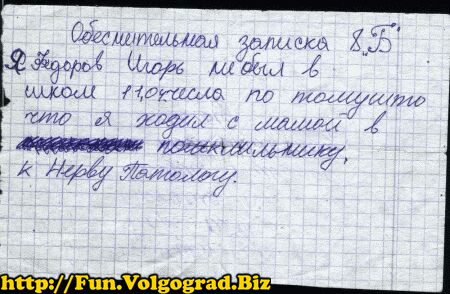 Обеснительная записка 8 „Б"
Я Федоров Игорь небыл в
школ 11,04числа по томушто
что я ходил с мамой в
к Нерву Патологу.
http://Fun.Volgograd.Biz